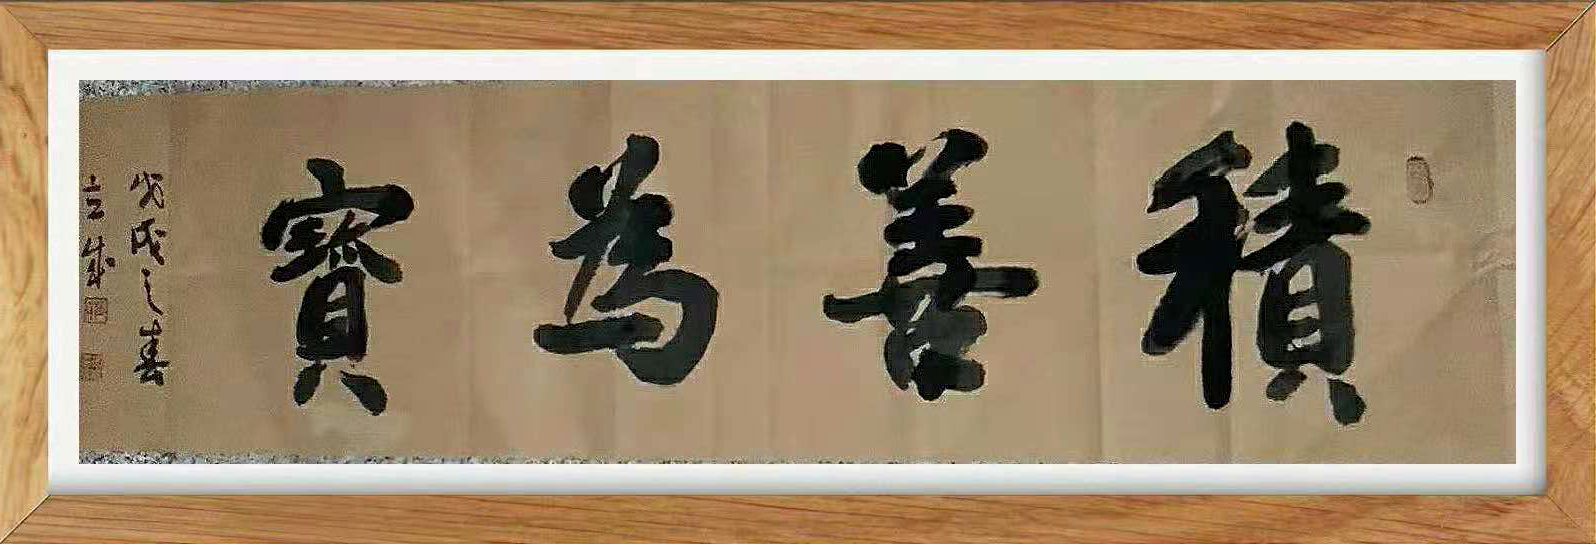 積善為寶
戊戌之春
立成